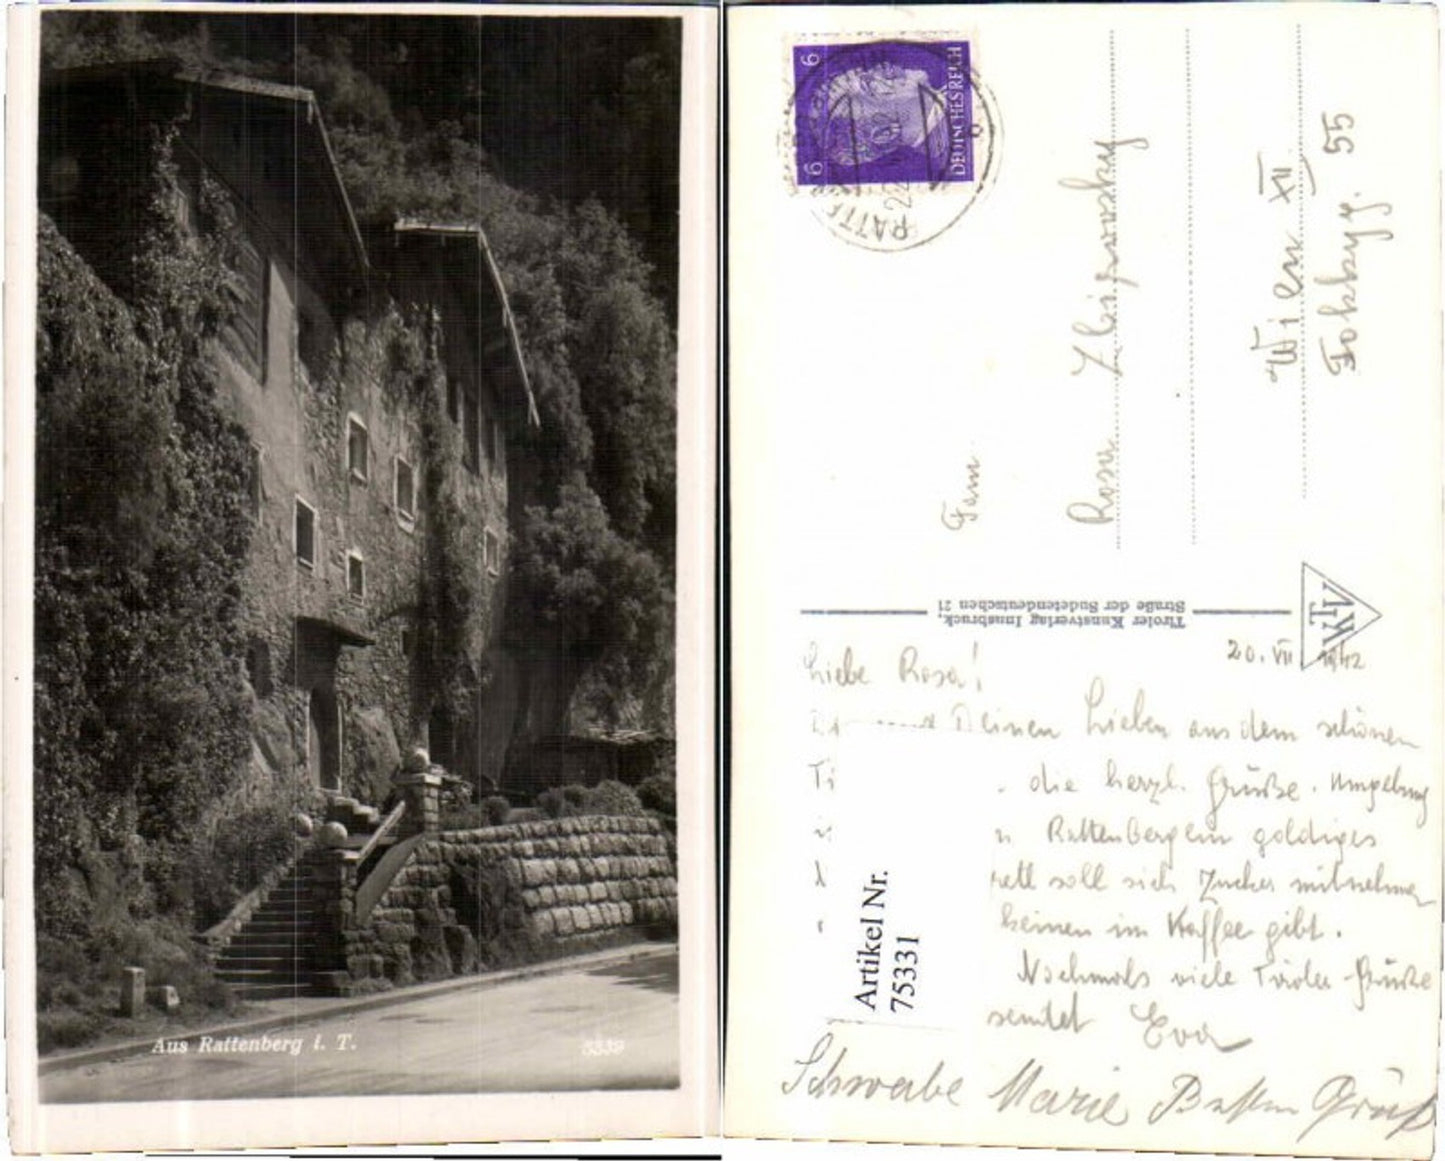 Aus Rattenberg i. T.
5339
6
6
DEUTSCHES REICH
RATTE
22
Fam
Rosa
Wien XII
55
Tiroler Kunstverlag Innsbruck,
Straße der Sudetendeutschen 21
TKV
20. VII 1942
Liebe Rosa!
Deinen Lieben aus dem schönen
Ti die herzl. Grüße. Umgebung
Rattenberg ein goldiges
soll sich Zucker mitnehmen
keinen im Kaffee gibt.
Nochmals viele Tiroler Grüße
sendet Eva
Artikel Nr.
75331
Schwabe Marie Gruß